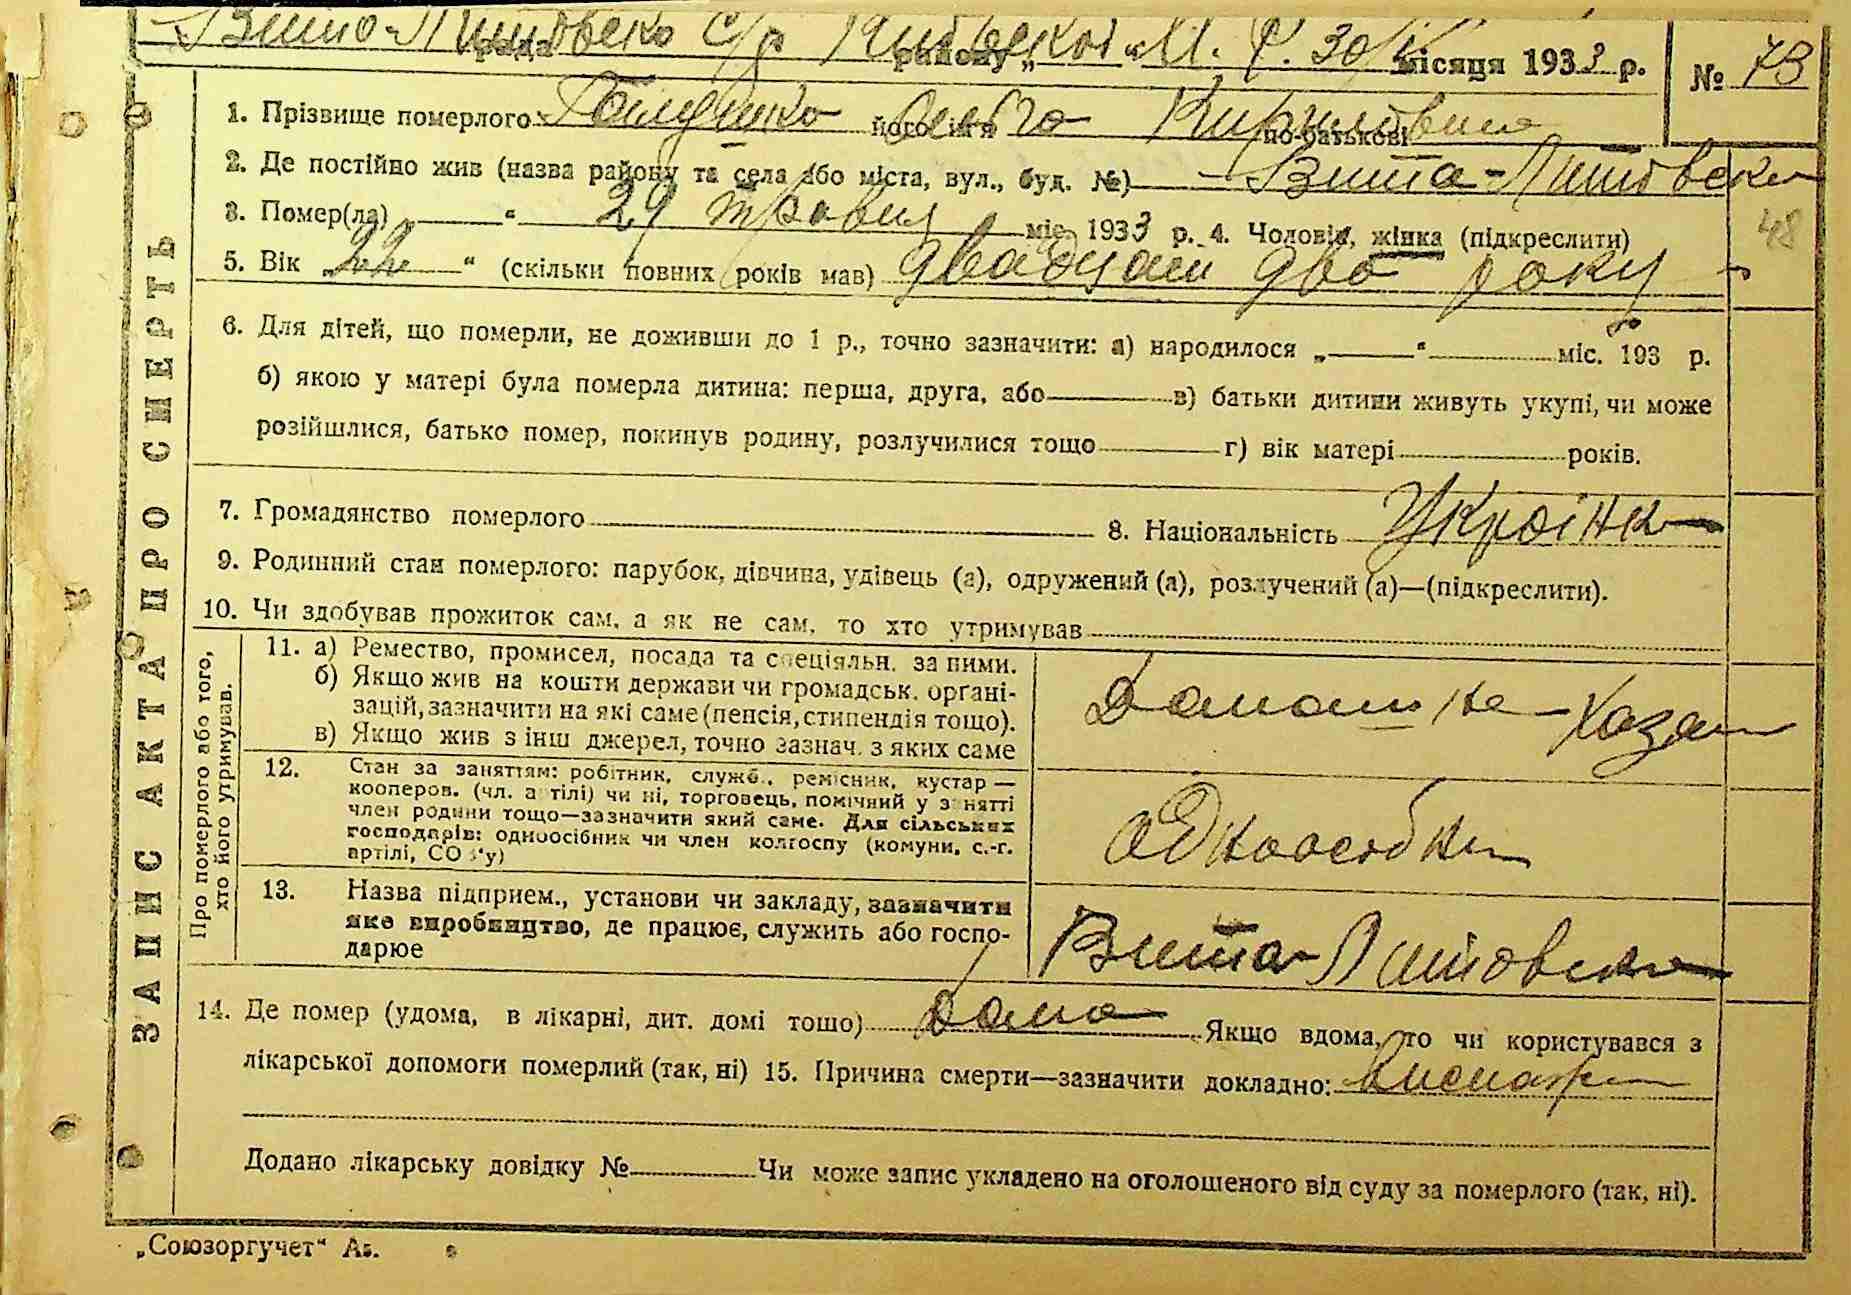 Вито-Литовско с/р Київської М. Р. 30/V
рада району „ місяця 1933 р. № 73
1. Прізвище померлого Голубенко його ім'я Ольга по-батькові Кириловна
2. Де постійно жив (назва району та села або міста, вул., буд. №) Вита-Литовска
3. Помер(ла) „ “ 29 травня міс. 1933 р. 4. Чоловік, жінка (підкреслити)
48
5. Вік „22“ (скільки повних років мав) двадцать два року
6. Для дітей, що померли, не доживши до 1 р., точно зазначити: а) народилося „ “ міс. 193 р.
б) якою у матері була померла дитина: перша, друга, або в) батьки дитини живуть укупі, чи може
розійшлися, батько помер, покинув родину, розлучилися тощо г) вік матері років.
7. Громадянство померлого 8. Національність Українка
9. Родинний стан померлого: парубок, дівчина, удівець (а), одружений (а), розлучений (а)—(підкреслити).
10. Чи здобував прожиток сам, а як не сам, то хто утримував
ЗАПИС АКТА ПРО СМЕРТЬ
Про померлого або того,
хто його утримував.
11. а) Ремество, промисел, посада та спеціяльн. за ними.
б) Якщо жив на кошти держави чи громадськ. органі-
зацій, зазначити на які саме (пенсія, стипендія тощо).
в) Якщо жив з інш джерел, точно зазнач. з яких саме
Домашне Хазай
12. Стан за заняттям: робітник, служб., ремісник, кустар —
кооперов. (чл. артілі) чи ні, торговець, помічний у занятті
член родини тощо—зазначити який саме. Для сільських
господарів: одноосібник чи член колгоспу (комуни, с.-г.
артілі, СОЗ'у)
одноосібн
13. Назва підприєм., установи чи закладу, зазначити
яке виробництво, де працює, служить або госпо-
дарює
Вита-Литовска
14. Де помер (удома, в лікарні, дит. домі тощо) Дома Якщо вдома, то чи користувався з
лікарської допомоги померлий (так, ні) 15. Причина смерти—зазначити докладно:
Додано лікарську довідку № Чи може запис укладено на оголошеного від суду за померлого (так, ні).
„Союзоргучет“